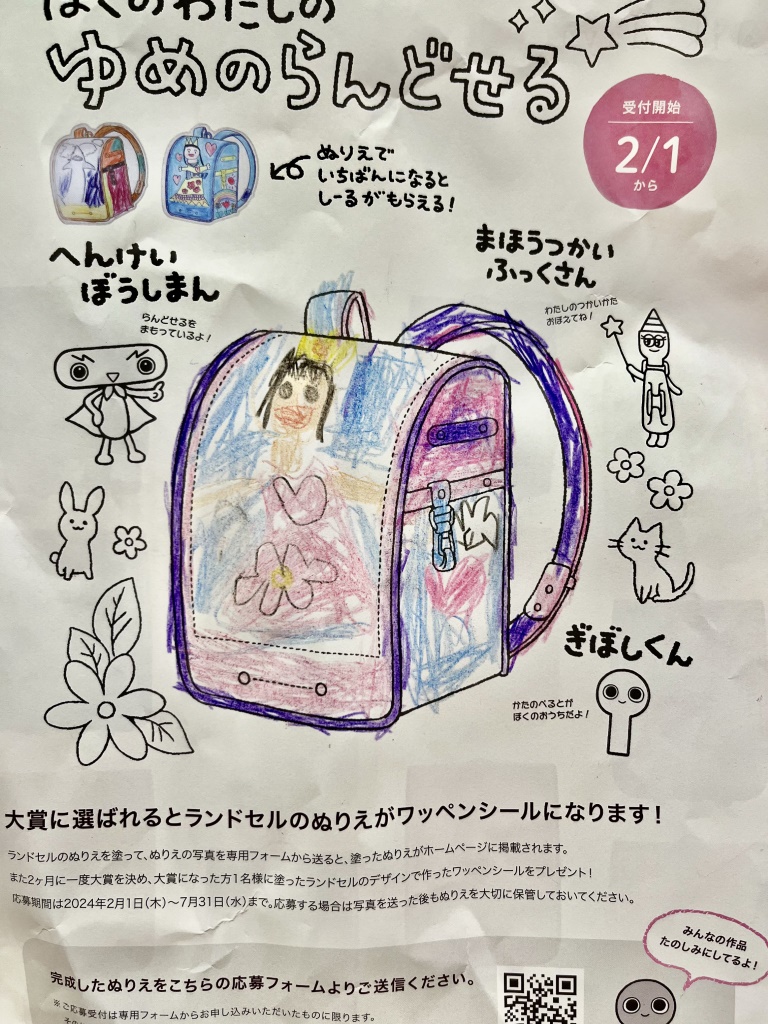 ぼくのわたしの
ゆめのらんどせる
受付開始
2/1
から
ぬりえで
いちばんになると
しーるがもらえる!
へんけい
ぼうしまん
らんどせるを
まもっているよ!
まほうつかい
ふっくさん
わたしのつかいかた
おぼえてね!
ぎぼしくん
かたのべるとが
ぼくのおうちだよ!
大賞に選ばれるとランドセルのぬりえがワッペンシールになります!
ランドセルのぬりえを塗って、ぬりえの写真を専用フォームから送ると、塗ったぬりえがホームページに掲載されます。
また2ヶ月に一度大賞を決め、大賞になった方1名様に塗ったランドセルのデザインで作ったワッペンシールをプレゼント!
応募期間は2024年2月1日(木)〜7月31日(水)まで。応募する場合は写真を送った後もぬりえを大切に保管しておいてください。
みんなの作品
たのしみにしてるよ!
完成したぬりえをこちらの応募フォームよりご送信ください。
※ご応募受付は専用フォームからお申し込みいただいたものに限ります。